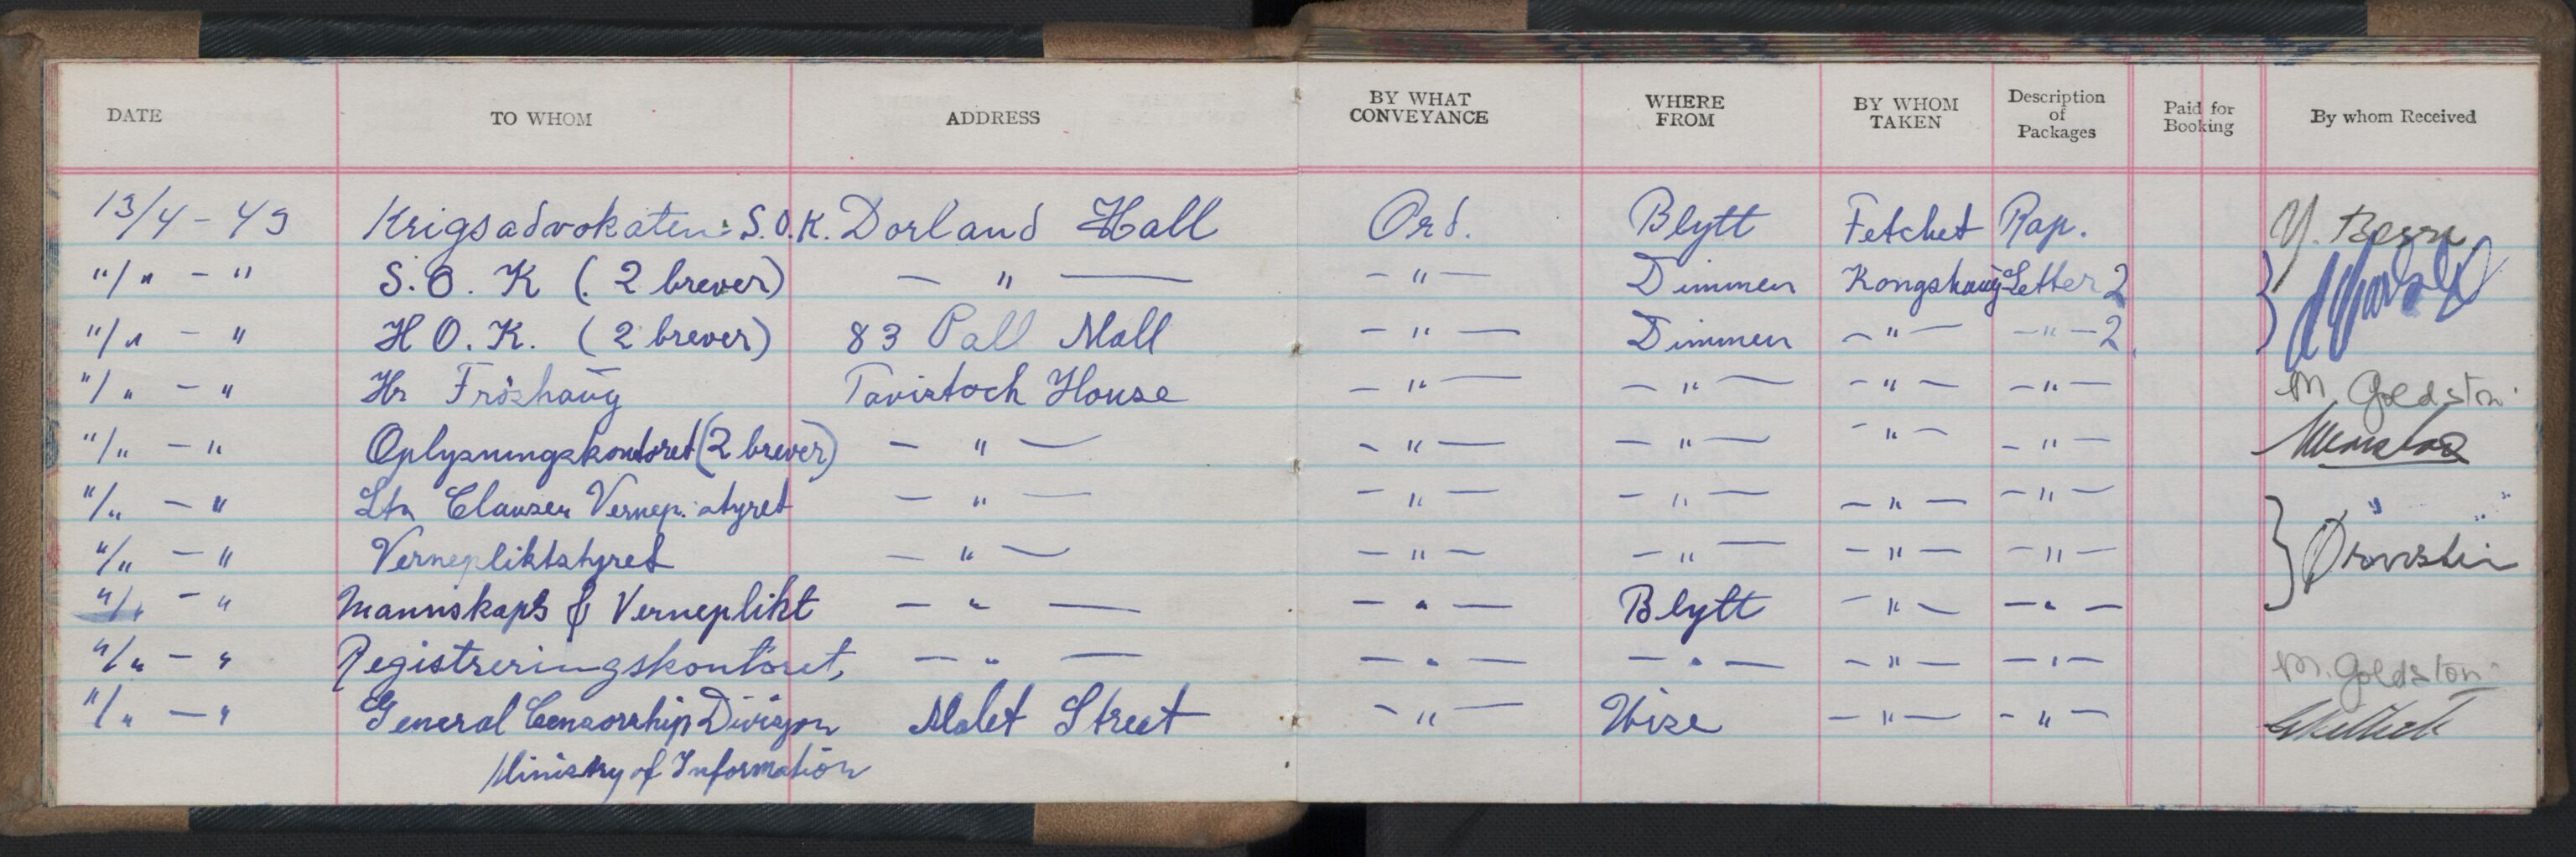 DATE TO WHOM ADDRESS BY WHAT CONVEYANCE WHERE FROM BY WHOM TAKEN Description of Packages Paid for Booking By whom Received
13/4 - 43 Krigsadvokaten: S.O.K. Dorland Hall Ord. Blytt Fetchet Rap.
"/" - " S.O.K (2 brever) — " — - " — Dimmen Kongshaug Letter 2
"/" - " H.O.K. (2 brever) 83 Pall Mall - " — Dimmen - " — - " - 2
"/" - " Hr Fröshaug Tavistock House - " — - " — - " - - " - M. Goldston
"/" - " Oplysningskontoret (2 brever) - " — - " — - " — - " - - " -
"/" - " Ltn Clausen Vernep. styret - " — - " — - " — - " — - " -
"/" - " Vernepliktstyret - " — - " — - " — - " — - " - Ørnstein
"/" - " Mannskaps & Verneplikt - " — - " — Blytt - " - - " -
"/" - " Registreringskontoret, - " — - " — - " — - " — - " - M. Goldston
"/" - " General Censorship Division Malet Street - " — Wise - " — - " -
Ministry of Information